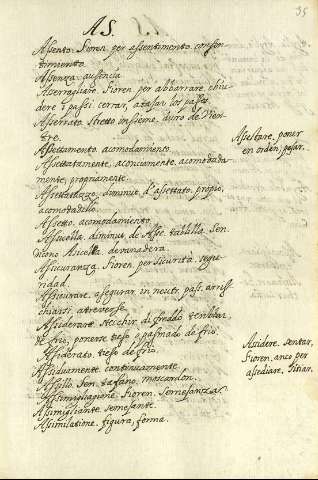 35
AS.
Assento. Fioren. per assentimento. consen-
timiento.
Assenza. ausencia
Asserragliare. Fioren. per abbarrare, chiu-
dere i passi. cerrar, atajar los passos.
Asserrato. stretto insieme. duro de vien-
tre.
Assettamento. acomodamiento.
Assettatamente, aconciamente. acomodada-
mente, propriamente.
Assettatuzzo. diminut. d'assettato. propio,
acomodadillo.
Assetto. acomodamiento.
Assicella. diminut. de Asse. tablilla. Sen.
Assicuranza. Fioren. per sicurità. segu-
ridad.
Assicurare. asegurar. in neutr. pass. arris-
chiarsi. atreverse.
Assiderare. secchir di freddo.
de frio, ponerse tieso o pasmado de frio.
Assiderato. tieso de frio.
Assiduamente. continuamente.
Assillo. Sen. tafano. moscardon.
Assimigliagione. Fioren. semejanza.
Assimigliante. semejante.
Assimilatione. figura, forma.
Assettare. poner
en orden, posar.
Assidere. sentar,
Fioren. anco per
assediare. sitiar.